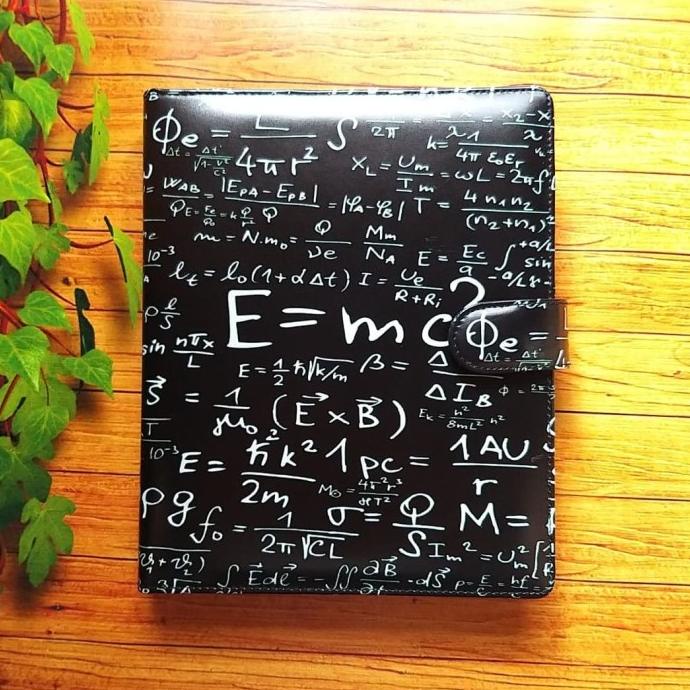 Φe = L/4πr² ∫ 2π k= 1/4πε₀εr
Δt = Δt'/√1-v²/c² X_L = Um/Im = ωL = 2πf
= W_AB = |E_PA - E_PB| = |φA-φB| T = 4n₁n₂/(n₂+n₁)²
Q E = Fe/Q₀ = k Q/r² Q
m = N.m₀ = Q/νe Mm/N_A E = Ec/a ∫ sin
10⁻³ ℓt = ℓ₀(1+αΔt) I = Ue/R+Ri
ρ ℓ/S E = mc² Φe = L
sin nπx/L E = 1/2 ħ√k/m β = Δ Δt = Δt'
ΔI_B Φ = 2π
S⃗ = 1/μ₀ (E⃗×B⃗) E_k = h²/8mL² n²
10⁻³ E = ħ²k²/2m 1pc = 1AU/r
M₀ = 4π²r³/ϰT²
ρg f₀ = 1/2π√CL σ = Q/S M =
Im² = Um²
∫E⃗dℓ⃗ = -∬ ∂B⃗/∂t · dS⃗ p = E/c = hf